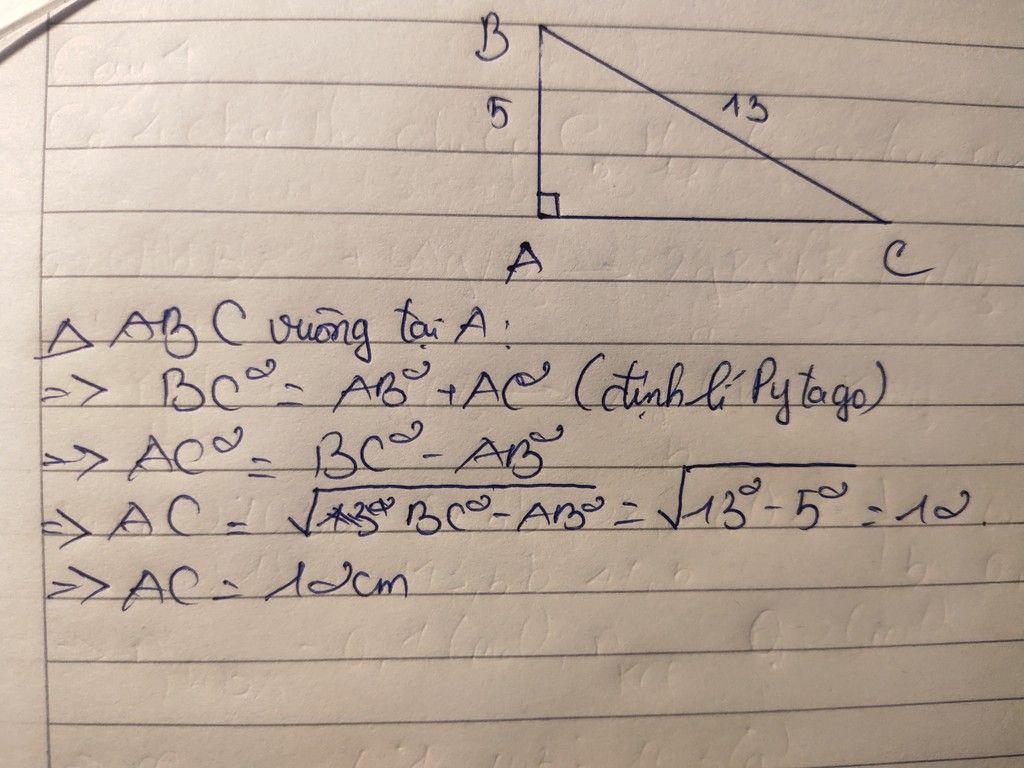 B
5
13
A
C
Δ ABC vuông tại A:
=> BC² = AB² + AC² (định lí Pytago)
=> AC² = BC² - AB²
=> AC = √(BC² - AB²) = √(13² - 5²) = 12.
=> AC = 12cm